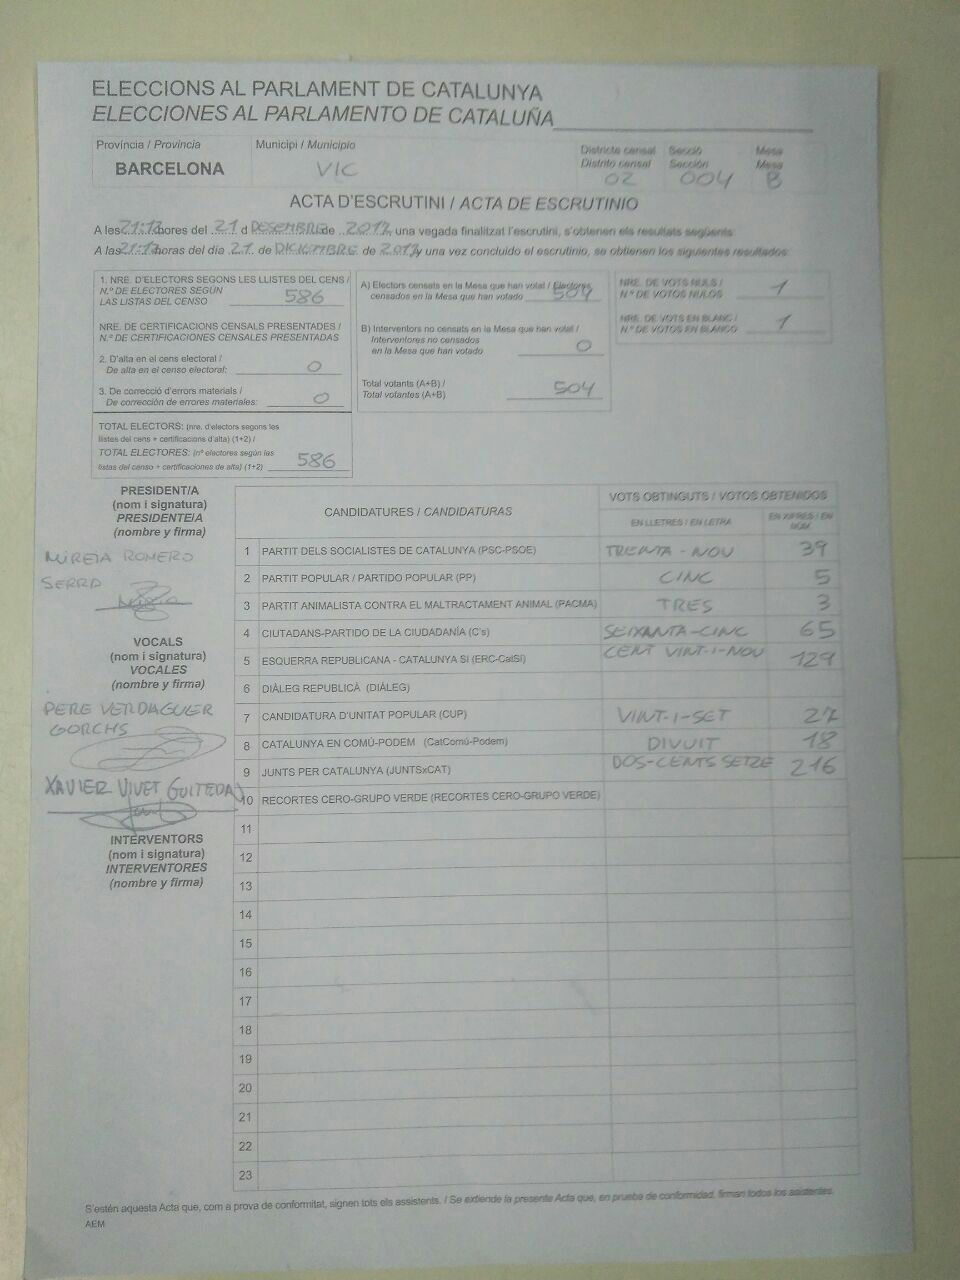 ELECCIONS AL PARLAMENT DE CATALUNYA
ELECCIONES AL PARLAMENTO DE CATALUÑA
Província / Provincia
BARCELONA
Municipi / Municipio
VIC
Districte censal
Distrito censal
02
Secció
Sección
004
Mesa
Mesa
B
ACTA D'ESCRUTINI / ACTA DE ESCRUTINIO
A les 21:17 hores del 21 d DESEMBRE de 2017, una vegada finalitzat l'escrutini, s'obtenen els resultats següents
A las 21:17 horas del día 21 de DICIEMBRE de 2017 y una vez concluido el escrutinio, se obtienen los siguientes resultados:
1. NRE. D'ELECTORS SEGONS LES LLISTES DEL CENS /
N.º DE ELECTORES SEGÚN
LAS LISTAS DEL CENSO 586
NRE. DE CERTIFICACIONS CENSALS PRESENTADES /
N.º DE CERTIFICACIONES CENSALES PRESENTADAS
2. D'alta en el cens electoral /
De alta en el censo electoral: 0
3. De correcció d'errors materials /
De corrección de errores materiales: 0
TOTAL ELECTORS: (nre. d'electors segons les
llistes del cens + certificacions d'alta) (1+2) /
TOTAL ELECTORES: (nº electores según las
listas del censo + certificaciones de alta) (1+2) 586
A) Electors censats en la Mesa que han votat / Electores
censados en la Mesa que han votado 504
B) Interventors no censats en la Mesa que han votat /
Interventores no censados
en la Mesa que han votado 0
Total votants (A+B) /
Total votantes (A+B) 504
NRE. DE VOTS NULS /
N.º DE VOTOS NULOS 1
NRE. DE VOTS EN BLANC /
N.º DE VOTOS EN BLANCO 1
PRESIDENT/A
(nom i signatura)
PRESIDENTE/A
(nombre y firma)
MIREIA ROMERO
SERRA
VOCALS
(nom i signatura)
VOCALES
(nombre y firma)
PERE VERDAGUER
GORCHS
XAVIER VIVET GUITEDA
INTERVENTORS
(nom i signatura)
INTERVENTORES
(nombre y firma)
CANDIDATURES / CANDIDATURAS
VOTS OBTINGUTS / VOTOS OBTENIDOS
EN LLETRES / EN LETRA
EN XIFRES / EN NÚM.
1 PARTIT DELS SOCIALISTES DE CATALUNYA (PSC-PSOE) TRENTA-NOU 39
2 PARTIT POPULAR / PARTIDO POPULAR (PP) CINC 5
3 PARTIT ANIMALISTA CONTRA EL MALTRACTAMENT ANIMAL (PACMA) TRES 3
4 CIUTADANS-PARTIDO DE LA CIUDADANÍA (C's) SEIXANTA-CINC 65
5 ESQUERRA REPUBLICANA - CATALUNYA SÍ (ERC-CatSí) CENT VINT-I-NOU 129
6 DIÀLEG REPUBLICÀ (DIÀLEG)
7 CANDIDATURA D'UNITAT POPULAR (CUP) VINT-I-SET 27
8 CATALUNYA EN COMÚ-PODEM (CatComú-Podem) DIVUIT 18
9 JUNTS PER CATALUNYA (JUNTSxCAT) DOS-CENTS SETZE 216
10 RECORTES CERO-GRUPO VERDE (RECORTES CERO-GRUPO VERDE)
11
12
13
14
15
16
17
18
19
20
21
22
23
S'estén aquesta Acta que, com a prova de conformitat, signen tots els assistents. / Se extiende la presente Acta que, en prueba de conformidad, firman todos los asistentes
AEM